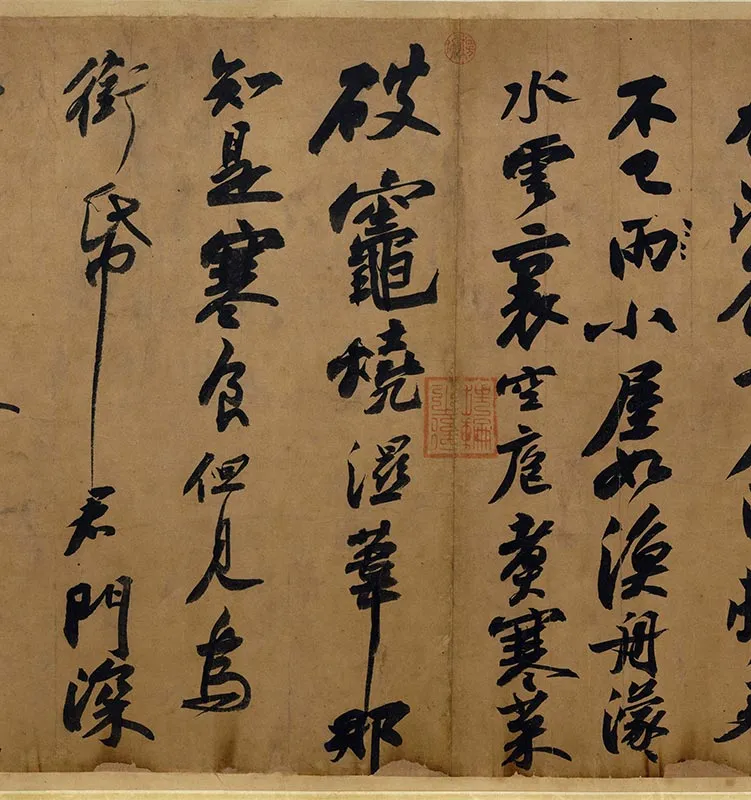 不已雨小屋如漁舟濛〻
水雲裏空庖煮寒菜
破竈燒濕葦那
知是寒食但見烏
銜帋君門深